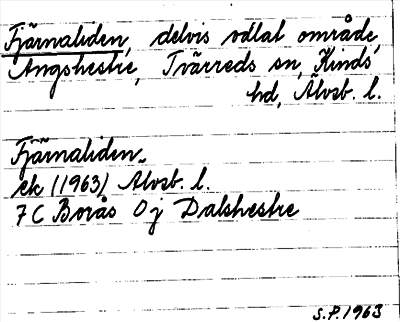 Fjärnaliden, delvis odlat område,
Ängshestre, Tvärreds sn, Kinds
hd, Älvsb. l.
Fjärnaliden
ek (1963) Älvsb. l.
7 C Borås 0 j Dalshestre
S.P. 1963